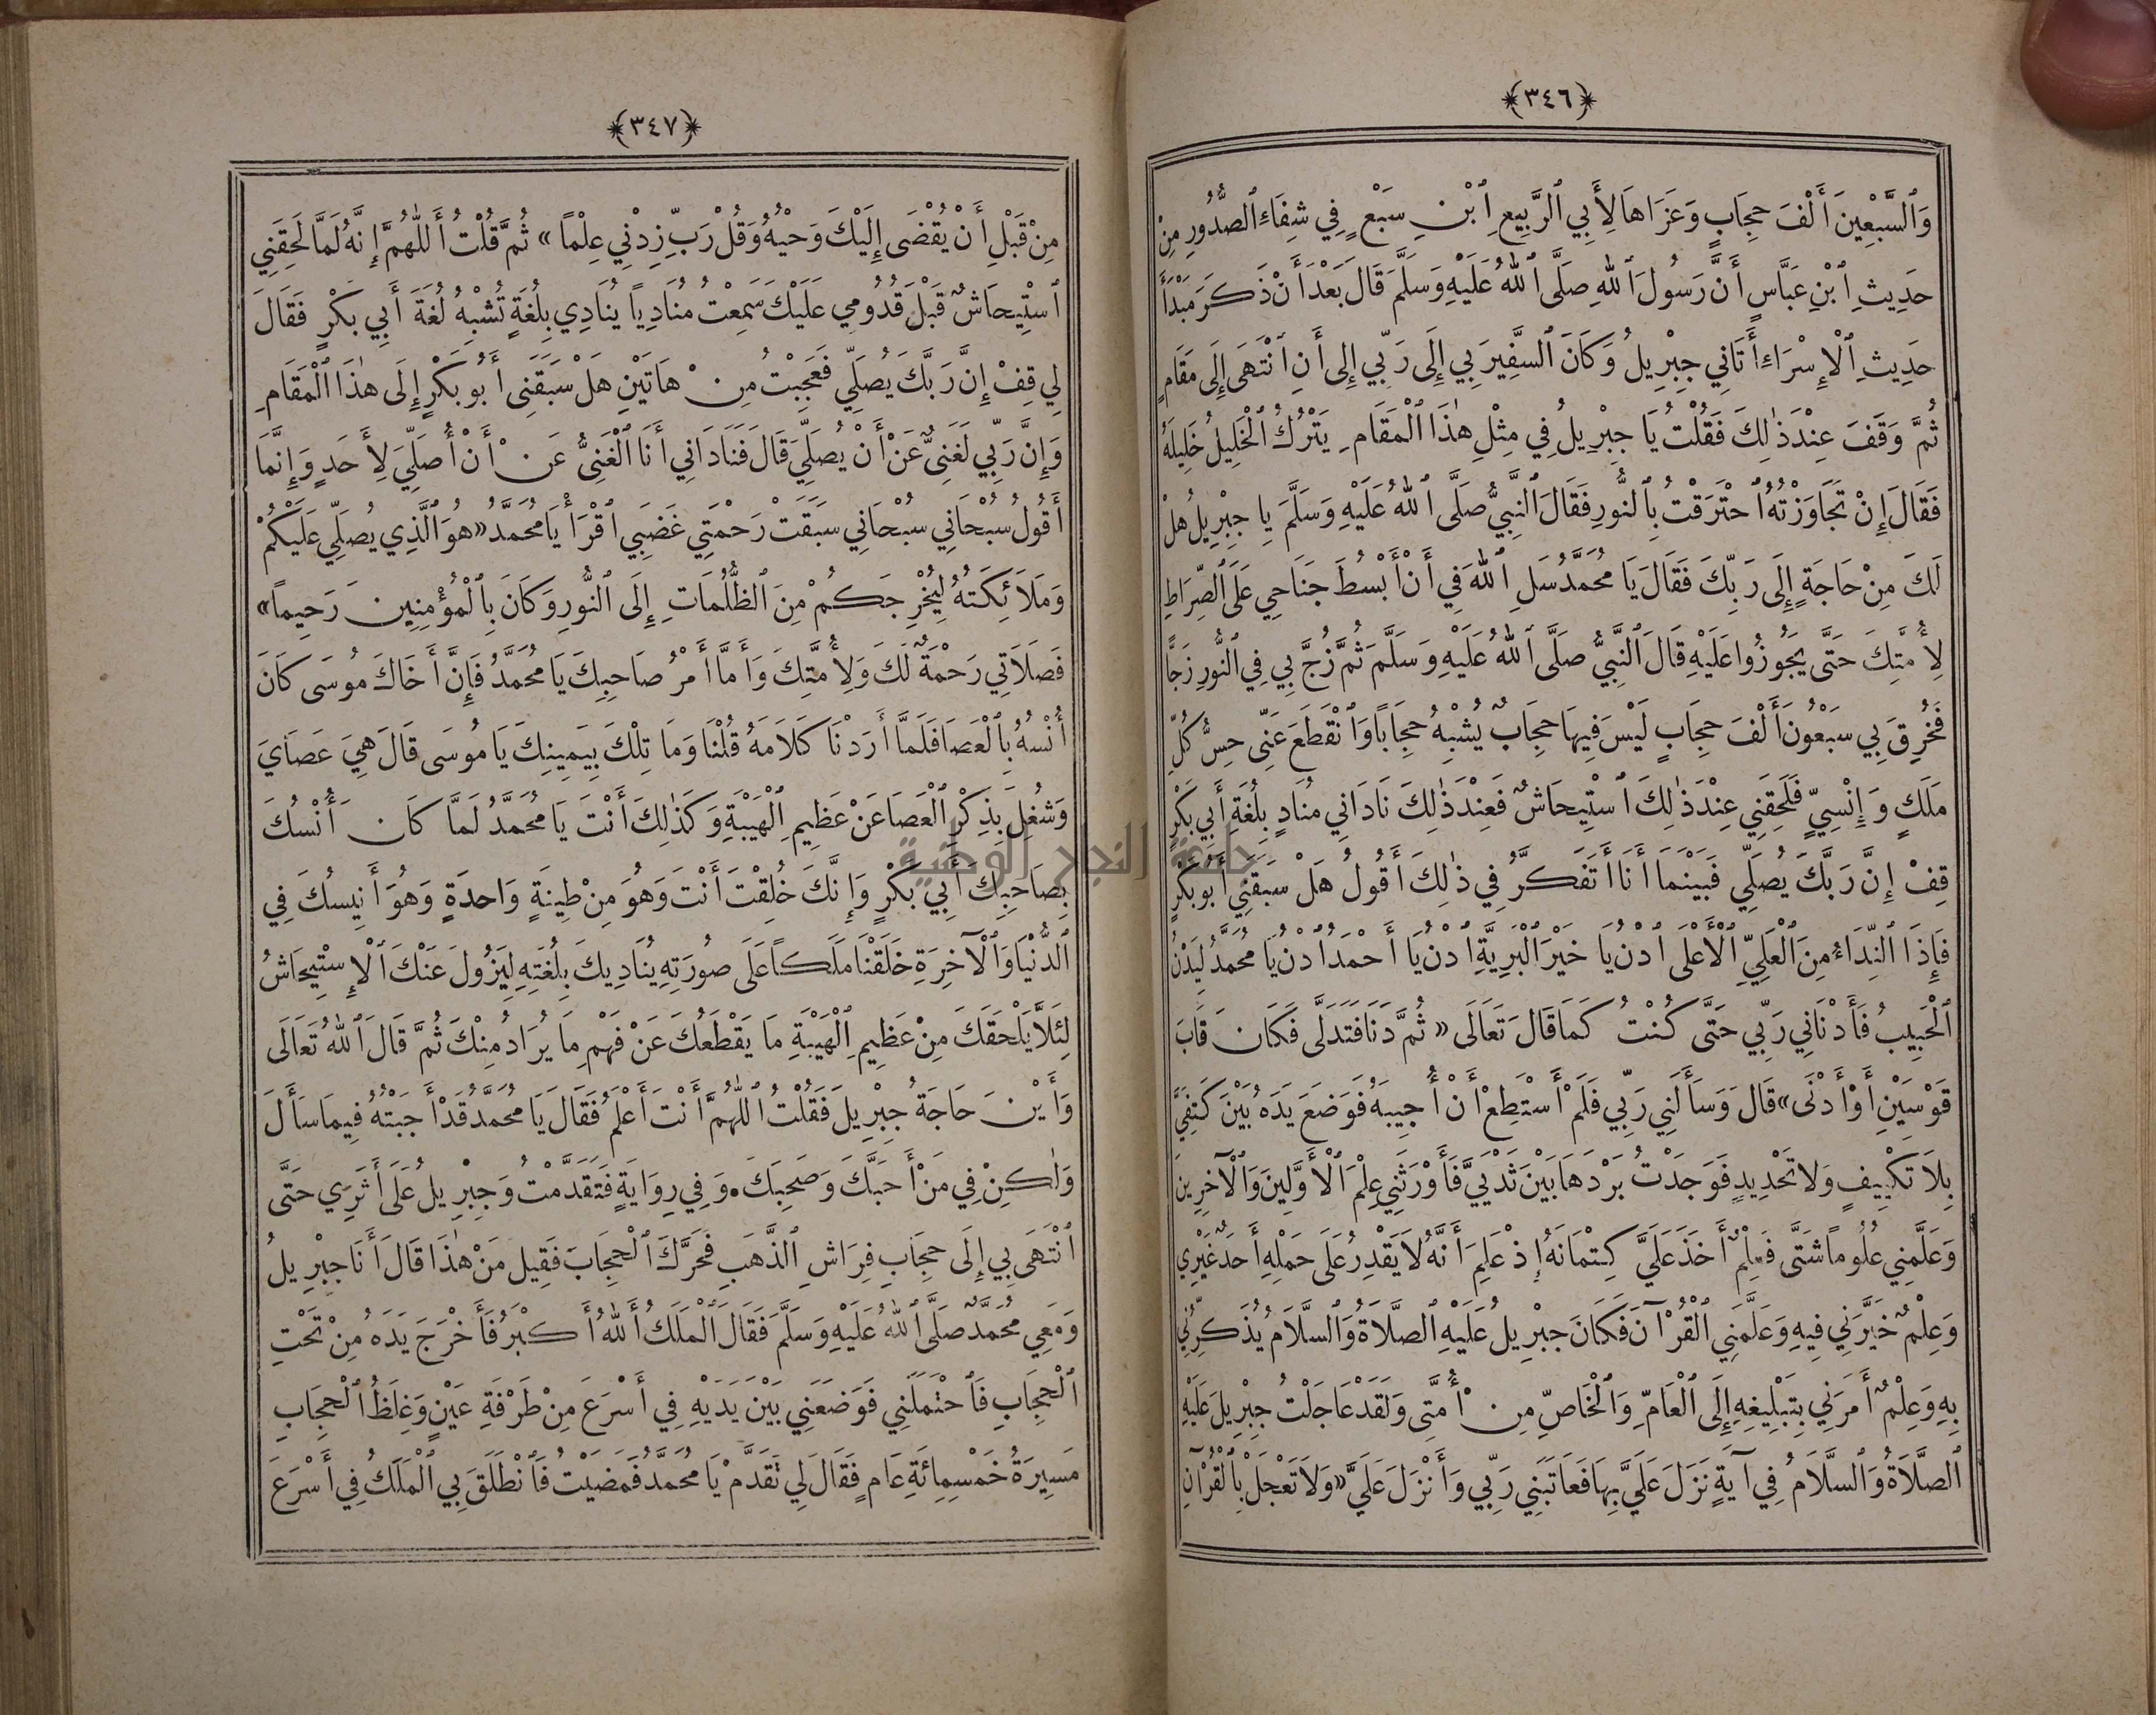 ﴿٣٤٦﴾
وَٱلسَّبْعِينَ أَلْفَ حِجَابٍ وَعَزَاهَا لِأَبِي ٱلرَّبِيعِ ٱبْنِ سَبْعٍ فِي شِفَاءِ ٱلصُّدُورِ مِنْ
حَدِيثِ ٱبْنِ عَبَّاسٍ أَنَّ رَسُولَ ٱللهِ صَلَّى ٱللهُ عَلَيْهِ وَسَلَّمَ قَالَ بَعْدَ أَنْ ذَكَرَ مَبْدَأَ
حَدِيثِ ٱلْإِسْرَاءِ أَتَانِي جِبْرِيلُ وَكَانَ ٱلسَّفِيرَ بِي إِلَى رَبِّي إِلَى أَنِ ٱنْتَهَى إِلَى مَقَامٍ
ثُمَّ وَقَفَ عِنْدَ ذٰلِكَ فَقُلْتُ يَا جِبْرِيلُ فِي مِثْلِ هٰذَا ٱلْمَقَامِ يَتْرُكُ ٱلْخَلِيلُ خَلِيلَهُ
فَقَالَ إِنْ تَجَاوَزْتُهُ ٱحْتَرَقْتُ بِٱلنُّورِ فَقَالَ ٱلنَّبِيُّ صَلَّى ٱللهُ عَلَيْهِ وَسَلَّمَ يَا جِبْرِيلُ هَلْ
لَكَ مِنْ حَاجَةٍ إِلَى رَبِّكَ فَقَالَ يَا مُحَمَّدُ سَلِ ٱللهَ فِي أَنْ أَبْسُطَ جَنَاحِي عَلَى ٱلصِّرَاطِ
لِأُمَّتِكَ حَتَّى يَجُوزُوا عَلَيْهِ قَالَ ٱلنَّبِيُّ صَلَّى ٱللهُ عَلَيْهِ وَسَلَّمَ ثُمَّ زُجَّ بِي فِي ٱلنُّورِ زَجًّا
فَخُرِقَ بِي سَبْعُونَ أَلْفَ حِجَابٍ لَيْسَ فِيهَا حِجَابٌ يُشْبِهُ حِجَابًا وَٱنْقَطَعَ عَنِّي حِسُّ كُلِّ
مَلَكٍ وَإِنْسِيٍّ فَلَحِقَنِي عِنْدَ ذٰلِكَ ٱسْتِيحَاشٌ فَعِنْدَ ذٰلِكَ نَادَانِي مُنَادٍ بِلُغَةِ أَبِي بَكْرٍ
قِفْ إِنَّ رَبَّكَ يُصَلِّي فَبَيْنَمَا أَنَا أَتَفَكَّرُ فِي ذٰلِكَ أَقُولُ هَلْ سَبَقَنِي أَبُو بَكْرٍ
فَإِذَا ٱلنِّدَاءُ مِنَ ٱلْعَلِيِّ ٱلْأَعْلَى ٱدْنُ يَا خَيْرَ ٱلْبَرِيَّةِ ٱدْنُ يَا أَحْمَدُ ٱدْنُ يَا مُحَمَّدُ لِيَدْنُ
ٱلْحَبِيبُ فَأَدْنَانِي رَبِّي حَتَّى كُنْتُ كَمَا قَالَ تَعَالَى «ثُمَّ دَنَا فَتَدَلَّى فَكَانَ قَابَ
قَوْسَيْنِ أَوْ أَدْنَى» قَالَ وَسَأَلَنِي رَبِّي فَلَمْ أَسْتَطِعْ أَنْ أُجِيبَهُ فَوَضَعَ يَدَهُ بَيْنَ كَتِفَيَّ
بِلَا تَكْيِيفٍ وَلَا تَحْدِيدٍ فَوَجَدْتُ بَرْدَهَا بَيْنَ ثَدْيَيَّ فَأَوْرَثَنِي عِلْمَ ٱلْأَوَّلِينَ وَٱلْآخِرِينَ
وَعَلَّمَنِي عُلُومًا شَتَّى فَعِلْمٌ أَخَذَ عَلَيَّ كِتْمَانَهُ إِذْ عَلِمَ أَنَّهُ لَا يَقْدِرُ عَلَى حَمْلِهِ أَحَدٌ غَيْرِي
وَعِلْمٌ خَيَّرَنِي فِيهِ وَعَلَّمَنِي ٱلْقُرْآنَ فَكَانَ جِبْرِيلُ عَلَيْهِ ٱلصَّلَاةُ وَٱلسَّلَامُ يُذَكِّرُنِي
بِهِ وَعِلْمٌ أَمَرَنِي بِتَبْلِيغِهِ إِلَى ٱلْعَامِّ وَٱلْخَاصِّ مِنْ أُمَّتِي وَلَقَدْ عَاجَلْتُ جِبْرِيلَ عَلَيْهِ
ٱلصَّلَاةُ وَٱلسَّلَامُ فِي آيَةٍ نَزَلَ عَلَيَّ بِهَا فَعَاتَبَنِي رَبِّي وَأَنْزَلَ عَلَيَّ «وَلَا تَعْجَلْ بِٱلْقُرْآنِ
﴿٣٤٧﴾
مِنْ قَبْلِ أَنْ يُقْضَى إِلَيْكَ وَحْيُهُ وَقُلْ رَبِّ زِدْنِي عِلْمًا» ثُمَّ قُلْتُ أَللّٰهُمَّ إِنَّهُ لَمَّا لَحِقَنِي
ٱسْتِيحَاشٌ قَبْلَ قُدُومِي عَلَيْكَ سَمِعْتُ مُنَادِيًا يُنَادِي بِلُغَةٍ تُشْبِهُ لُغَةَ أَبِي بَكْرٍ فَقَالَ
لِي قِفْ إِنَّ رَبَّكَ يُصَلِّي فَعَجِبْتُ مِنْ هَاتَيْنِ هَلْ سَبَقَنِي أَبُو بَكْرٍ إِلَى هٰذَا ٱلْمَقَامِ
وَإِنَّ رَبِّي لَغَنِيٌّ عَنْ أَنْ يُصَلِّيَ قَالَ فَنَادَانِي أَنَا ٱلْغَنِيُّ عَنْ أَنْ أُصَلِّيَ لِأَحَدٍ وَإِنَّمَا
أَقُولُ سُبْحَانِي سُبْحَانِي سَبَقَتْ رَحْمَتِي غَضَبِي ٱقْرَأْ يَا مُحَمَّدُ «هُوَ ٱلَّذِي يُصَلِّي عَلَيْكُمْ
وَمَلَائِكَتُهُ لِيُخْرِجَكُمْ مِنَ ٱلظُّلُمَاتِ إِلَى ٱلنُّورِ وَكَانَ بِٱلْمُؤْمِنِينَ رَحِيمًا»
فَصَلَاتِي رَحْمَةٌ لَكَ وَلِأُمَّتِكَ وَأَمَّا أَمْرُ صَاحِبِكَ يَا مُحَمَّدُ فَإِنَّ أَخَاكَ مُوسَى كَانَ
أُنْسُهُ بِٱلْعَصَا فَلَمَّا أَرَدْنَا كَلَامَهُ قُلْنَا وَمَا تِلْكَ بِيَمِينِكَ يَا مُوسَى قَالَ هِيَ عَصَايَ
وَشُغِلَ بِذِكْرِ ٱلْعَصَا عَنْ عَظِيمِ ٱلْهَيْبَةِ وَكَذٰلِكَ أَنْتَ يَا مُحَمَّدُ لَمَّا كَانَ أُنْسُكَ
بِصَاحِبِكَ أَبِي بَكْرٍ وَإِنَّكَ خُلِقْتَ أَنْتَ وَهُوَ مِنْ طِينَةٍ وَاحِدَةٍ وَهُوَ أَنِيسُكَ فِي
ٱلدُّنْيَا وَٱلْآخِرَةِ خَلَقْنَا مَلَكًا عَلَى صُورَتِهِ يُنَادِيكَ بِلُغَتِهِ لِيَزُولَ عَنْكَ ٱلْإِسْتِيحَاشُ
لِئَلَّا يَلْحَقَكَ مِنْ عَظِيمِ ٱلْهَيْبَةِ مَا يَقْطَعُكَ عَنْ فَهْمِ مَا يُرَادُ مِنْكَ ثُمَّ قَالَ ٱللهُ تَعَالَى
وَأَيْنَ حَاجَةُ جِبْرِيلَ فَقُلْتُ ٱللّٰهُمَّ أَنْتَ أَعْلَمُ فَقَالَ يَا مُحَمَّدُ قَدْ أَجَبْتُهُ فِيمَا سَأَلَ
وَلٰكِنْ فِي مَنْ أَحَبَّكَ وَصَحِبَكَ. وَفِي رِوَايَةٍ فَتَقَدَّمْتُ وَجِبْرِيلُ عَلَى أَثَرِي حَتَّى
ٱنْتَهَى بِي إِلَى حِجَابِ فِرَاشِ ٱلذَّهَبِ فَحَرَّكَ ٱلْحِجَابَ فَقِيلَ مَنْ هٰذَا قَالَ أَنَا جِبْرِيلُ
وَمَعِي مُحَمَّدٌ صَلَّى ٱللهُ عَلَيْهِ وَسَلَّمَ فَقَالَ ٱلْمَلَكُ أَللهُ أَكْبَرُ فَأَخْرَجَ يَدَهُ مِنْ تَحْتِ
ٱلْحِجَابِ فَٱحْتَمَلَنِي فَوَضَعَنِي بَيْنَ يَدَيْهِ فِي أَسْرَعَ مِنْ طَرْفَةِ عَيْنٍ وَغِلَظُ ٱلْحِجَابِ
مَسِيرَةُ خَمْسِمِائَةِ عَامٍ فَقَالَ لِي تَقَدَّمْ يَا مُحَمَّدُ فَمَضَيْتُ فَٱنْطَلَقَ بِي ٱلْمَلَكُ فِي أَسْرَعَ
جامعة النجاح الوطنية